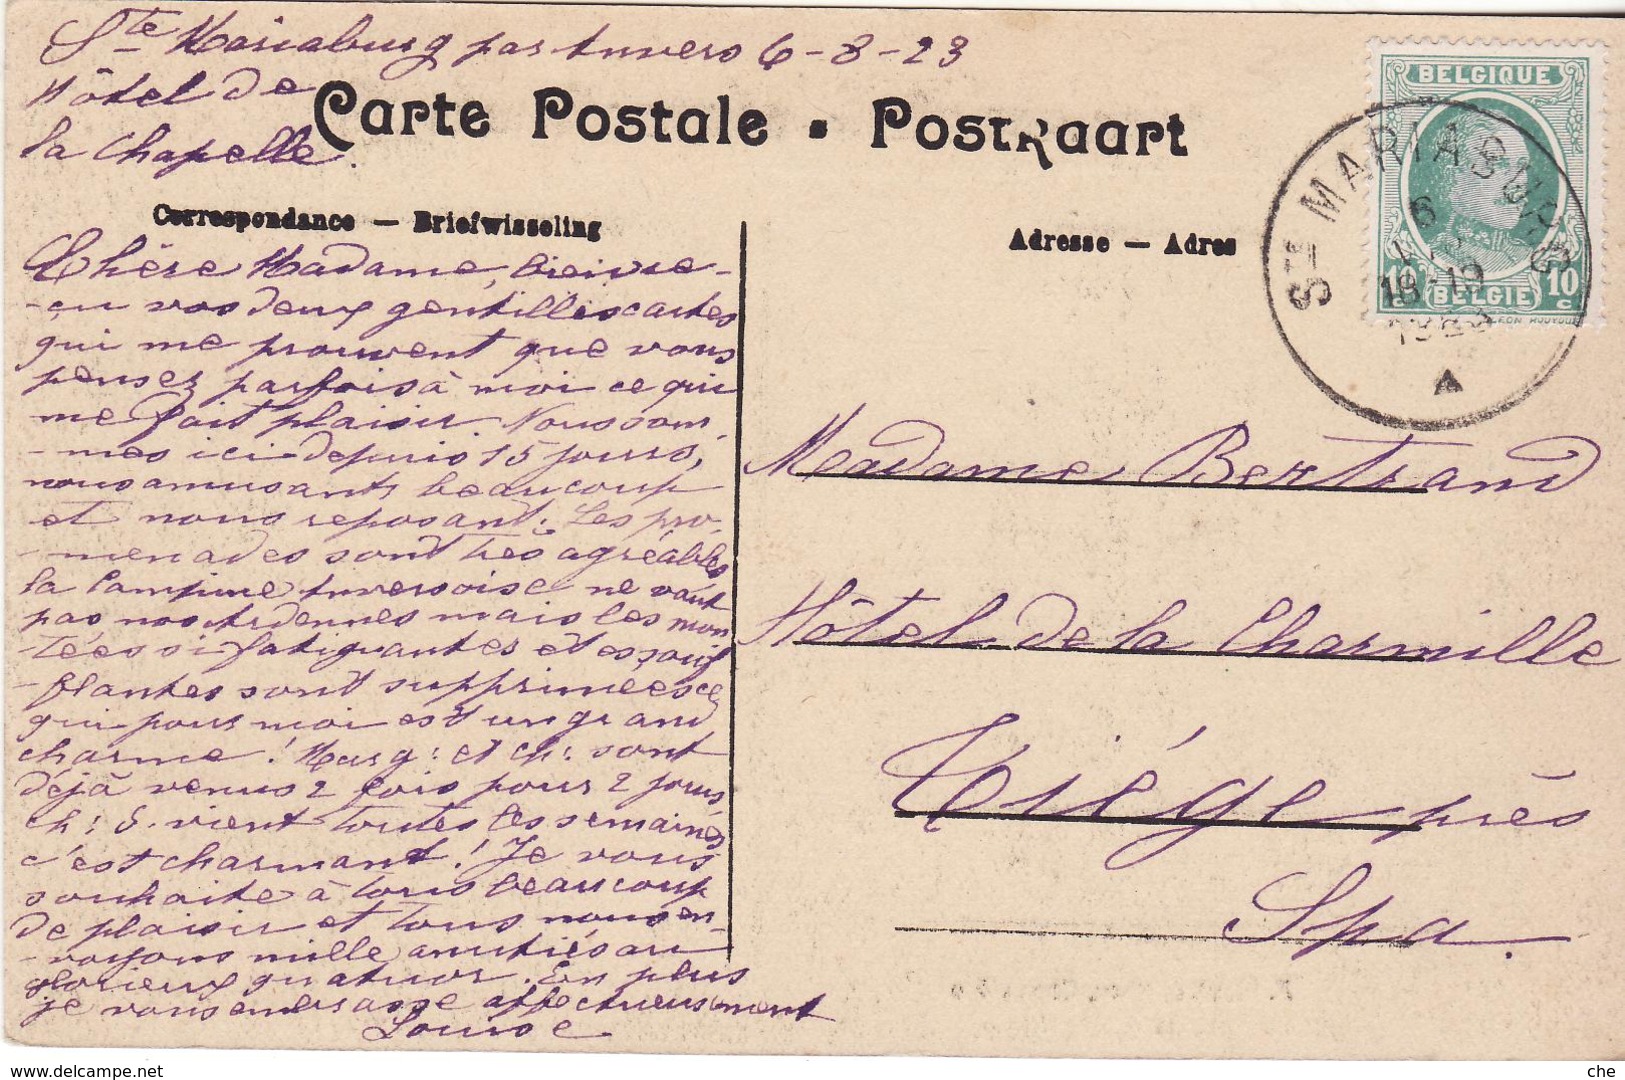 Ste Mariaburg par Anvers 6-8-23
Hôtel de
la Chapelle.
Carte Postale • Postkaart
Correspondance — Briefwisseling
Adresse — Adres
BELGIQUE
10 BELGIE 10
c
STE MARIABURG
6
18-19
1923
Chère Madame, bien re-
-çu vos deux gentilles cartes
qui me prouvent que vous
pensez parfois à moi ce qui
me fait plaisir. Nous som-
-mes ici depuis 15 jours,
nous amusants beaucoup
et nous reposant. Les pro-
-menades sont très agréables
la Campine Anversoise ne vaut
pas nos Ardennes mais les mon
-tées si fatigantes et essouf
-flantes sont supprimées ce
qui pour moi est un grand
charme! Marg: et ch: sont
déjà venus 2 fois pour 2 jours
ch: S. vient toutes les semaines
c'est charmant! Je vous
souhaite à tous beaucoup
de plaisir et tous nous en-
-voyons mille amitiés au
glorieux quatuor. En plus
je vous embrasse affectueusement
Louise
Madame Bertrand
Hôtel de la Charmille
Tiége près
Spa.
che